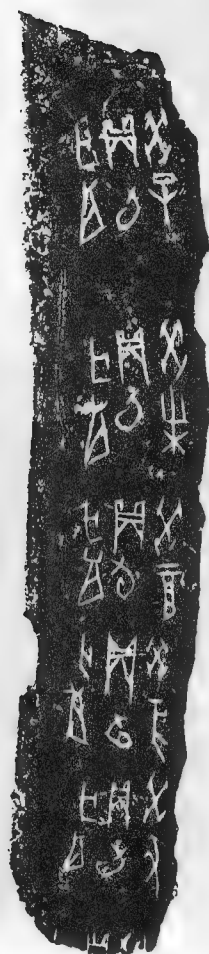 癸巳貞旬亡𡆥
癸未貞旬亡𡆥
癸酉貞旬亡𡆥
癸亥貞旬亡𡆥
癸丑貞旬亡𡆥